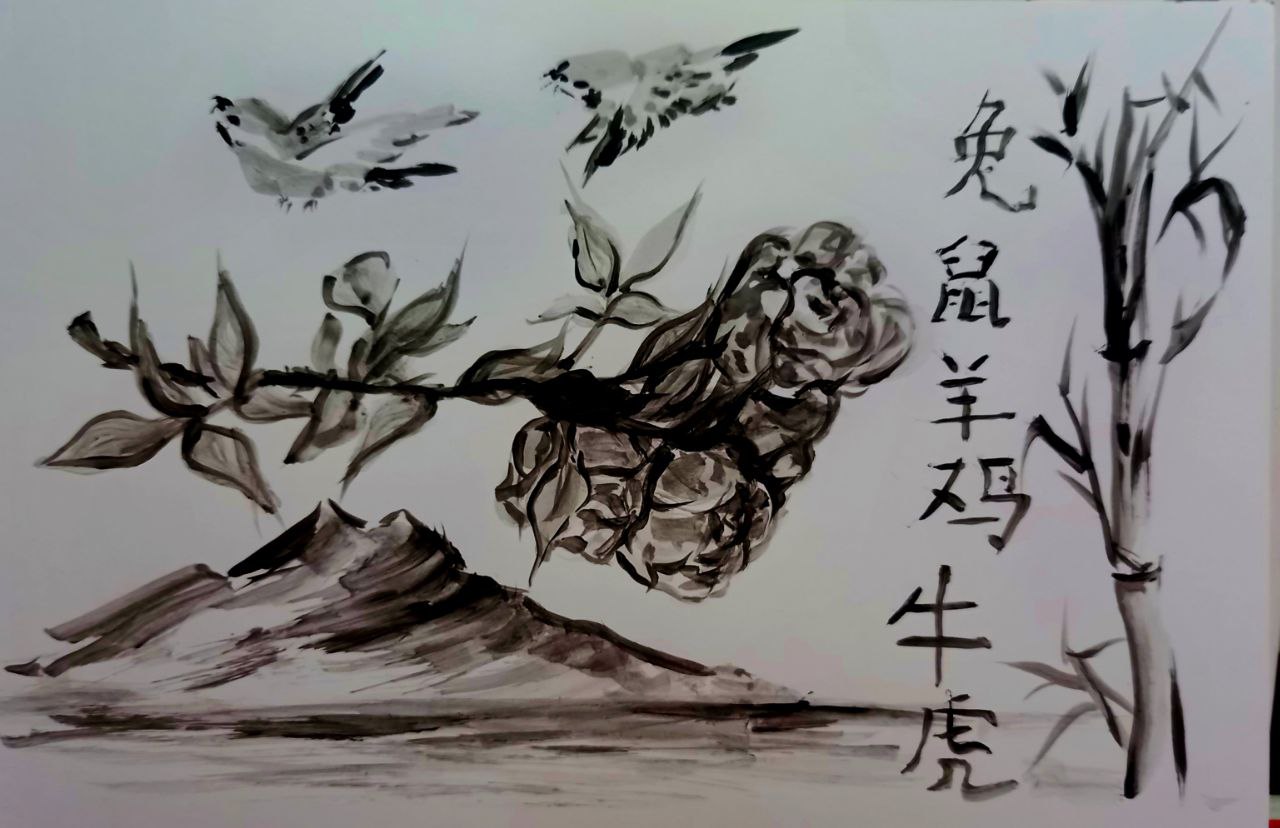 兔鼠羊鸡牛虎